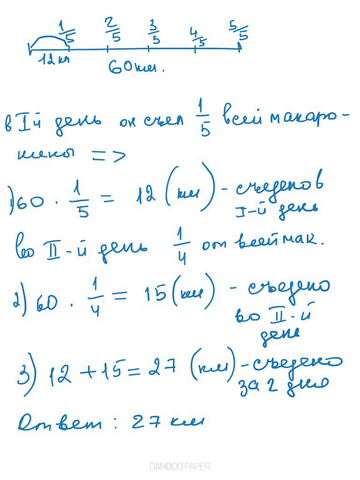 1/5 2/5 3/5 4/5 5/5
12 км
60 км.
в Iй день он съел 1/5 всей макаро-
нины =>
1) 60 · 1/5 = 12 (км) - съедено в
I-й день
во II-й день 1/4 от всей мак.
2) 60 · 1/4 = 15 (км) - съедено
во II-й
день
3) 12 + 15 = 27 (км) - съедено
за 2 дня
Ответ: 27 км
BAMBOO PAPER